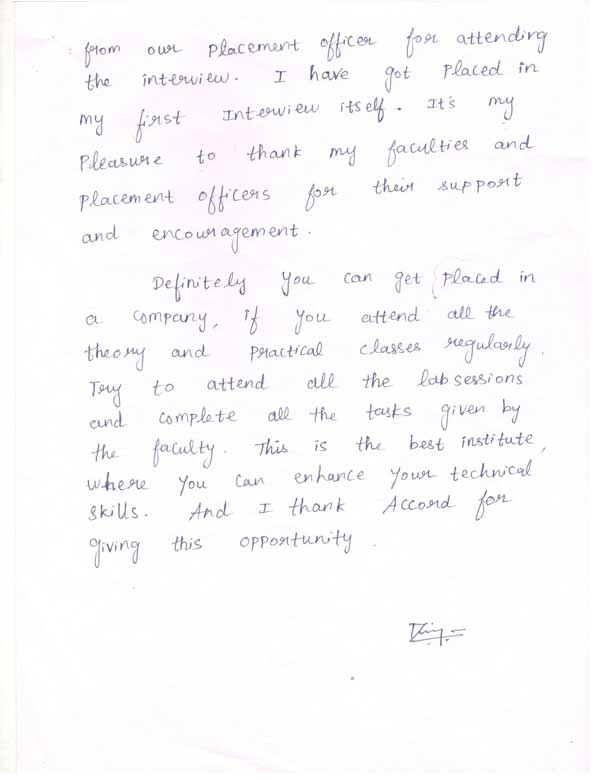 from our placement officer for attending
the interview. I have got placed in
my first Interview itself. It's my
Pleasure to thank my faculties and
placement officers for their support
and encouragement.
Definitely you can get placed in
a company, if you attend all the
theory and practical classes regularly.
Try to attend all the lab sessions
and complete all the tasks given by
the faculty. This is the best institute,
where you can enhance your technical
skills. And I thank Accord for
giving this opportunity.